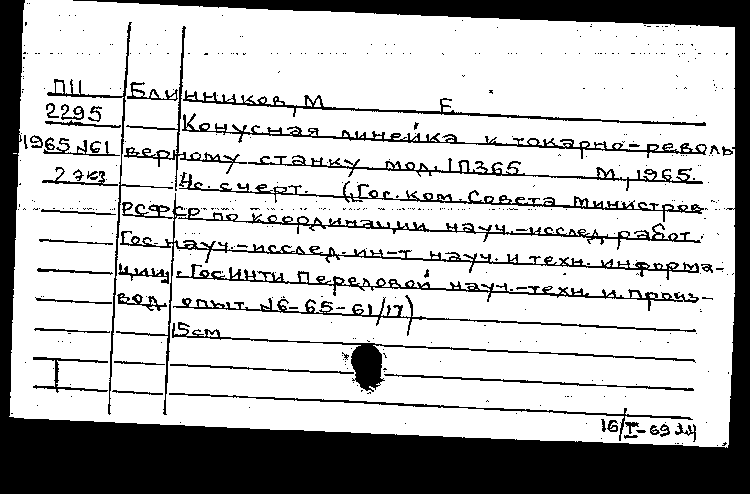 П11 Блинников, М Е.
2295 Конусная линейка к токарно-револь
1965 №61 верному станку мод. 1П365. М., 1965.
2 экз 4с. с черт. (Гос. ком. Совета Министров
РСФСР по координации науч.-исслед. работ.
Гос. науч.-исслед. ин-т науч. и техн. информа-
ции. ГосИНТИ. Передовой науч.-техн. и произ-
вод. опыт. №6-65-61/17).
15см
I
16/I-69